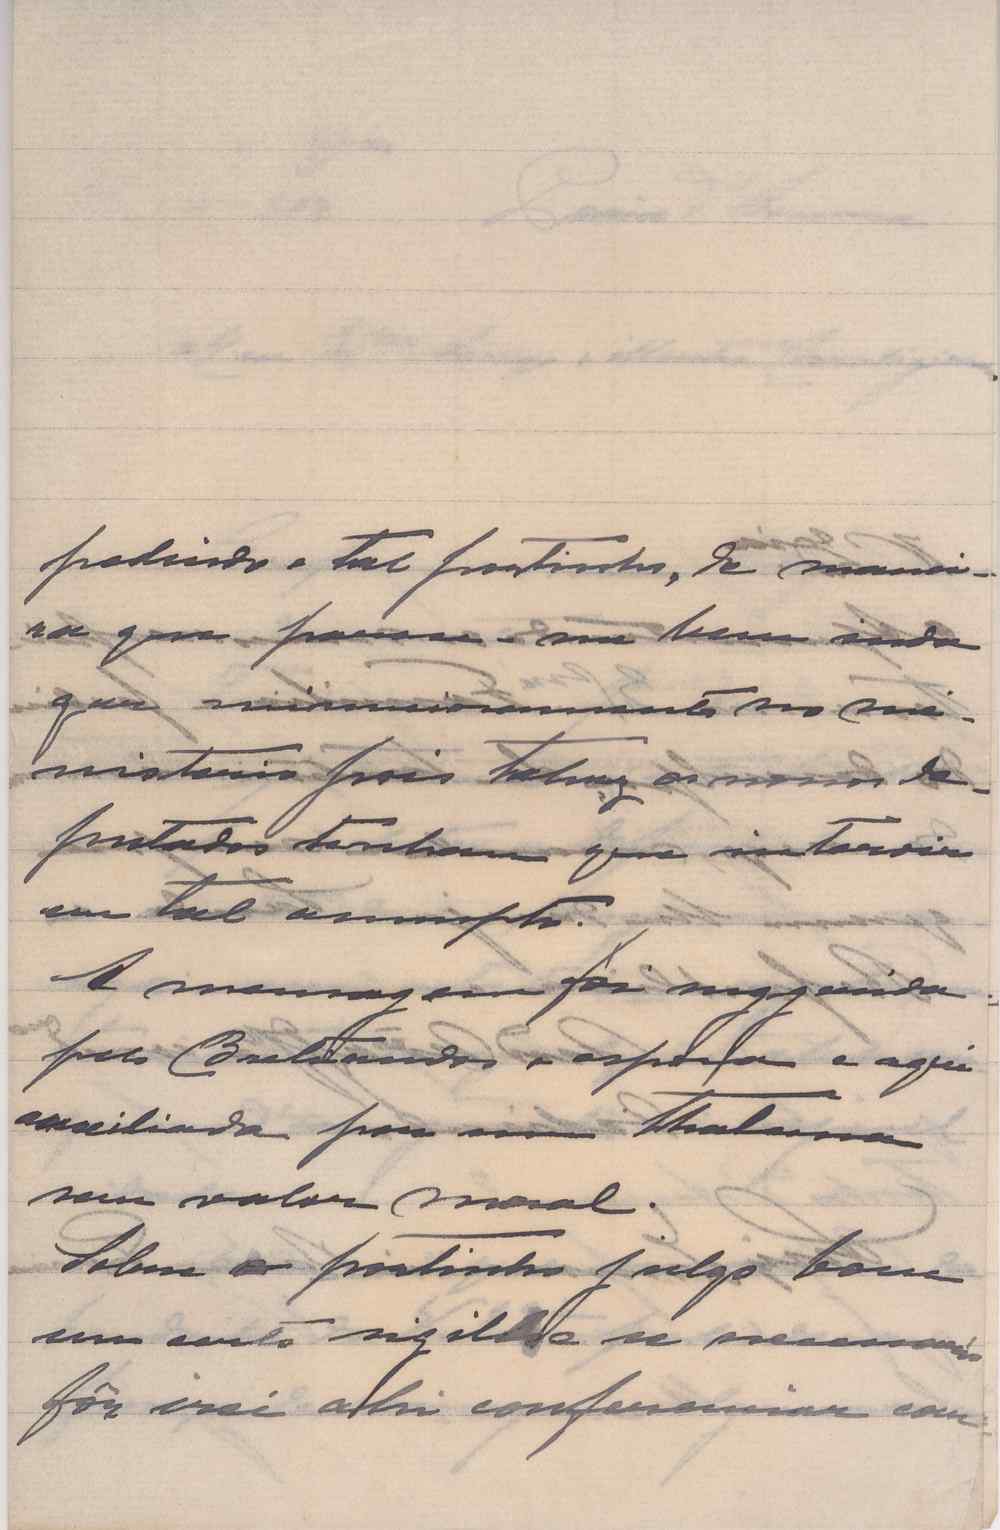 pedindo o tal postinho, de manei-
ra que parece-me bem inda
gar minuciosamente no mi-
nisterio pois talvez os nossos de-
putados tenham que intervir
em tal assumpto.
A mensagem foi suggerida
pelo Bretiandos e esposa e aqui
auxiliada por um thalassa
sem valor moral.
Sobre o postinho julgo bom
um certo sigillo e se necessario
fôr irei ahi conferenciar com